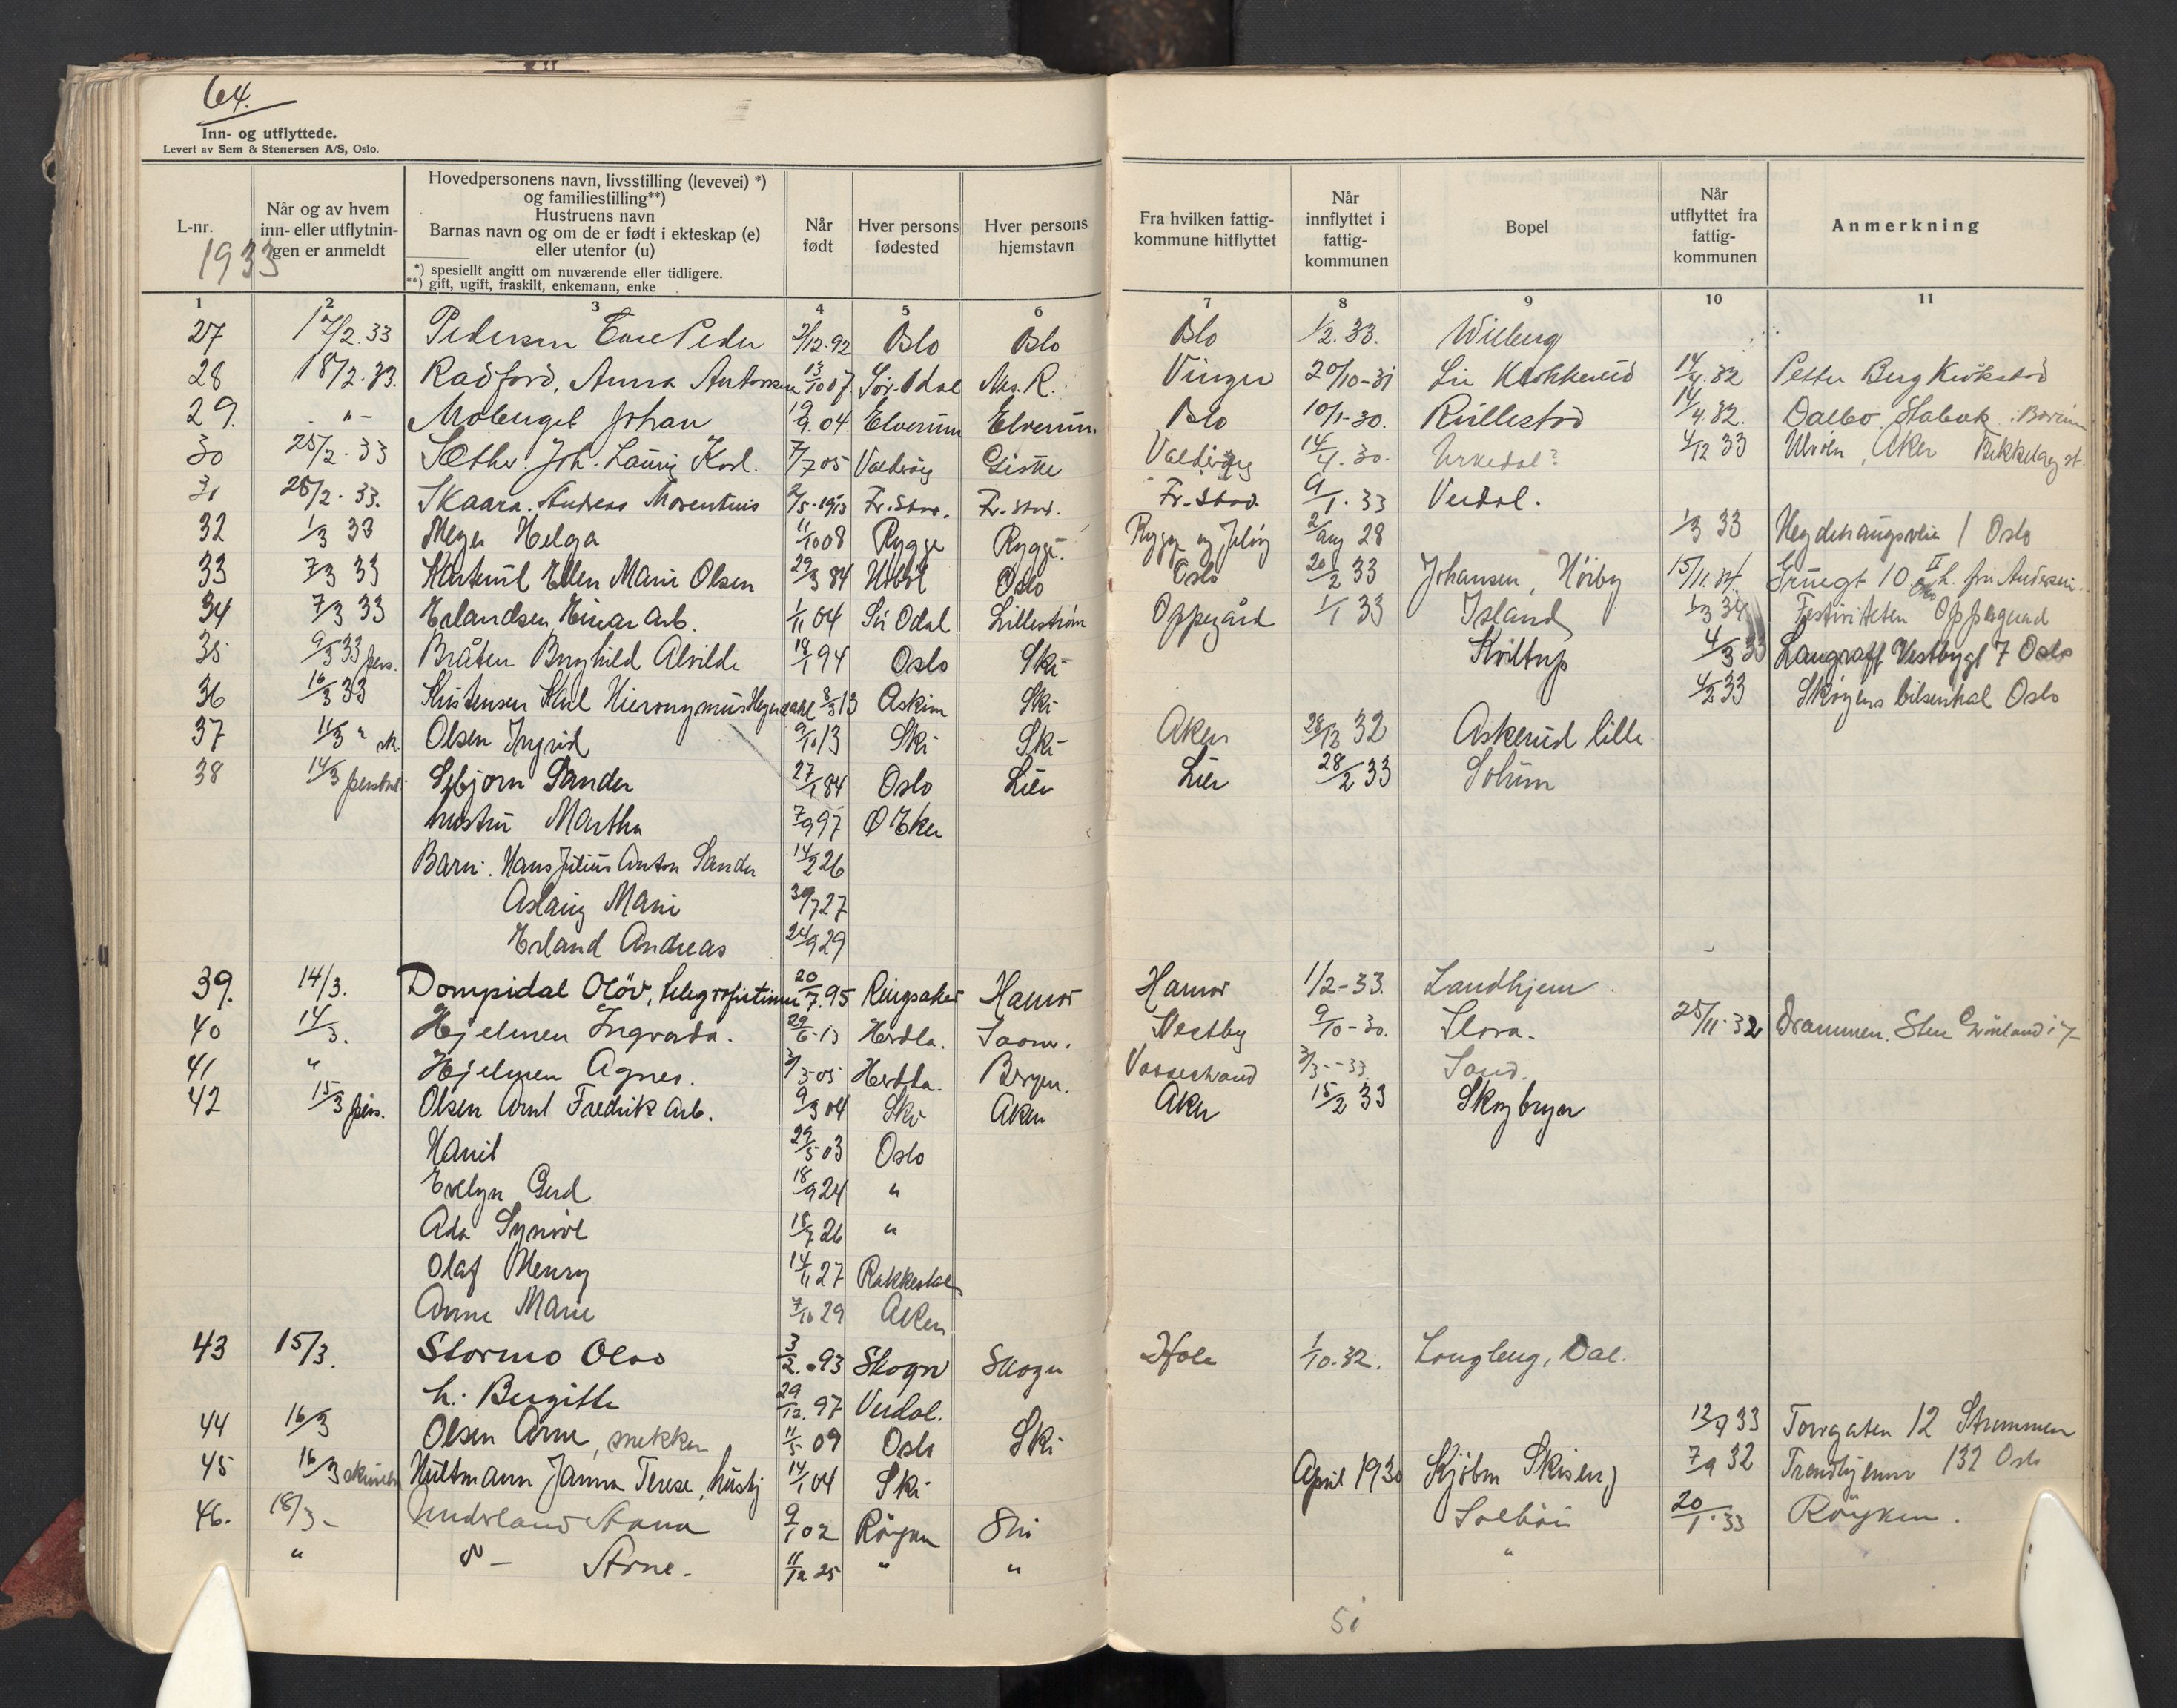 64.
Inn- og utflyttede.
Levert av Sem & Stenersen A/S, Oslo.
L-nr.
1933
Når og av hvem
inn- eller utflytnin-
gen er anmeldt
Hovedpersonens navn, livsstilling (levevei) *)
og familiestilling**)
Hustruens navn
Barnas navn og om de er født i ekteskap (e)
eller utenfor (u)
*) spesiellt angitt om nuværende eller tidligere.
**) gift, ugift, fraskilt, enkemann, enke
Når
født
Hver persons
fødested
Hver persons
hjemstavn
Fra hvilken fattig-
kommune hitflyttet
Når
innflyttet i
fattig-
kommunen
Bopel
Når
utflyttet fra
fattig-
kommunen
Anmerkning
1 2 3 4 5 6 7 8 9 10 11
27 17/2.33 Pedersen Peder /12.92 Oslo Oslo Oslo 1/2.33. Wilberg
28 18/2.33. Radford, Anna Antonsen 13/10 07 Sør-Odal Nes. R. Vinger 20/10-31 Lie 14/4.32 Petter Berg
29. -"- Johan 19/9.04. Elverum Elverum Oslo 10/1-30. Rullestad 14/4.32. Dalbo. Stabæk. Bærum
30 25/2.33 Sæther. Joh. Lauriz Karl. 7/7 05 Valderøy Giske Valderøy 14/4.30. Urkedal? 4/12 33 Ulvøen, Aker Bekkelag st.
31 26/2.33. Skaara. Andreas 2/5-1913 Fr.stad. Fr.stad. Fr.stad. 9/1.33 Verdal.
32 1/3 33 Meyer Helga 11/10 08 Rygge Rygge. Rygge og Jeløy 2/aug 28 1/3 33 Hegdehaugsveien 1 Oslo
33 7/3 33 Ellen Marie Olsen 29/3 84 Oslo Oslo 20/2 33 Johansen, Høiby 15/11.34. 10 II h. fru Andersen. Oslo
34 7/3 33 Erlandsen, Einar arb. 1/11 04 Sø Odal Lillestrøm Oppegård 1/1 33 Island 1/3 34 Festiviteten Oppegaard
35 9/3 33 pers. Bråten Borghild Alvilde 18/1 94 Oslo Ski 4/3 33 Langraff Vestbygt 7 Oslo
36 16/3 33 Kristensen Karl Hieronymus 8/3 13 Askim Ski 4/2 33 Skøyens bilsentral Oslo
37 11/3 " Olsen Ingrid 9/10 13 Ski Ski Aker 28/12 32 Askerud lille
38 14/3 Sander 27/1 84 Oslo Lier Lier 28/2 33 Solum
hustru Martha 7/9 97 Ø Eker
Barn. Hans Julius Anton Sander 14/2 26
Aslaug Marie 30/7 27
Erland Andreas 24/9 29
39. 14/3. Dompidal Oløv, telegrafistinne 20/7.95 Ringsaker Hamar Hamar 1/2-33. Landhjem
40 14/3. Hjelmen Ingvarda. 29/6-13 Herdla. Vestby 9/10-30. Flora. 25/11.32 Drammen.
41 " Hjelmen Agnes. 3/3-05 Herdla. Bergen. Vossestrand 3/3--33. Sand.
42 15/3 pers. Olsen Arnt Fredrik arb. 9/3 04 Ski Aker Aker 15/2 33 Skogbryn
29/5 03 Oslo
Evelyn Gerd 18/9 24 "
Ada Synnøve 18/7 26 "
Olaf Henry 14/11 27 Rakkestad
Anne Marie 7/10 29 Aker
43 15/3. Stormo Olav 3/2.93 Skogn Skogn Hole 1/10.32. Langberg, Dal.
h. Bergitte 29/12.97 Verdal.
44 16/3 Olsen Arne, snekker 11/5 09 Oslo Ski 12/9 33 Torvgaten 12 Strømmen
45 16/3 Hultmann Janna Terese, hushj 14/1 04 Ski April 1930 7/9 32 Trondhjemsv 132 Oslo
46. 18/3- 9/1 02 Røyken Ski Solbøi 20/1.33 Røyken.
" d- Arne. 11/12 25 " " "
51